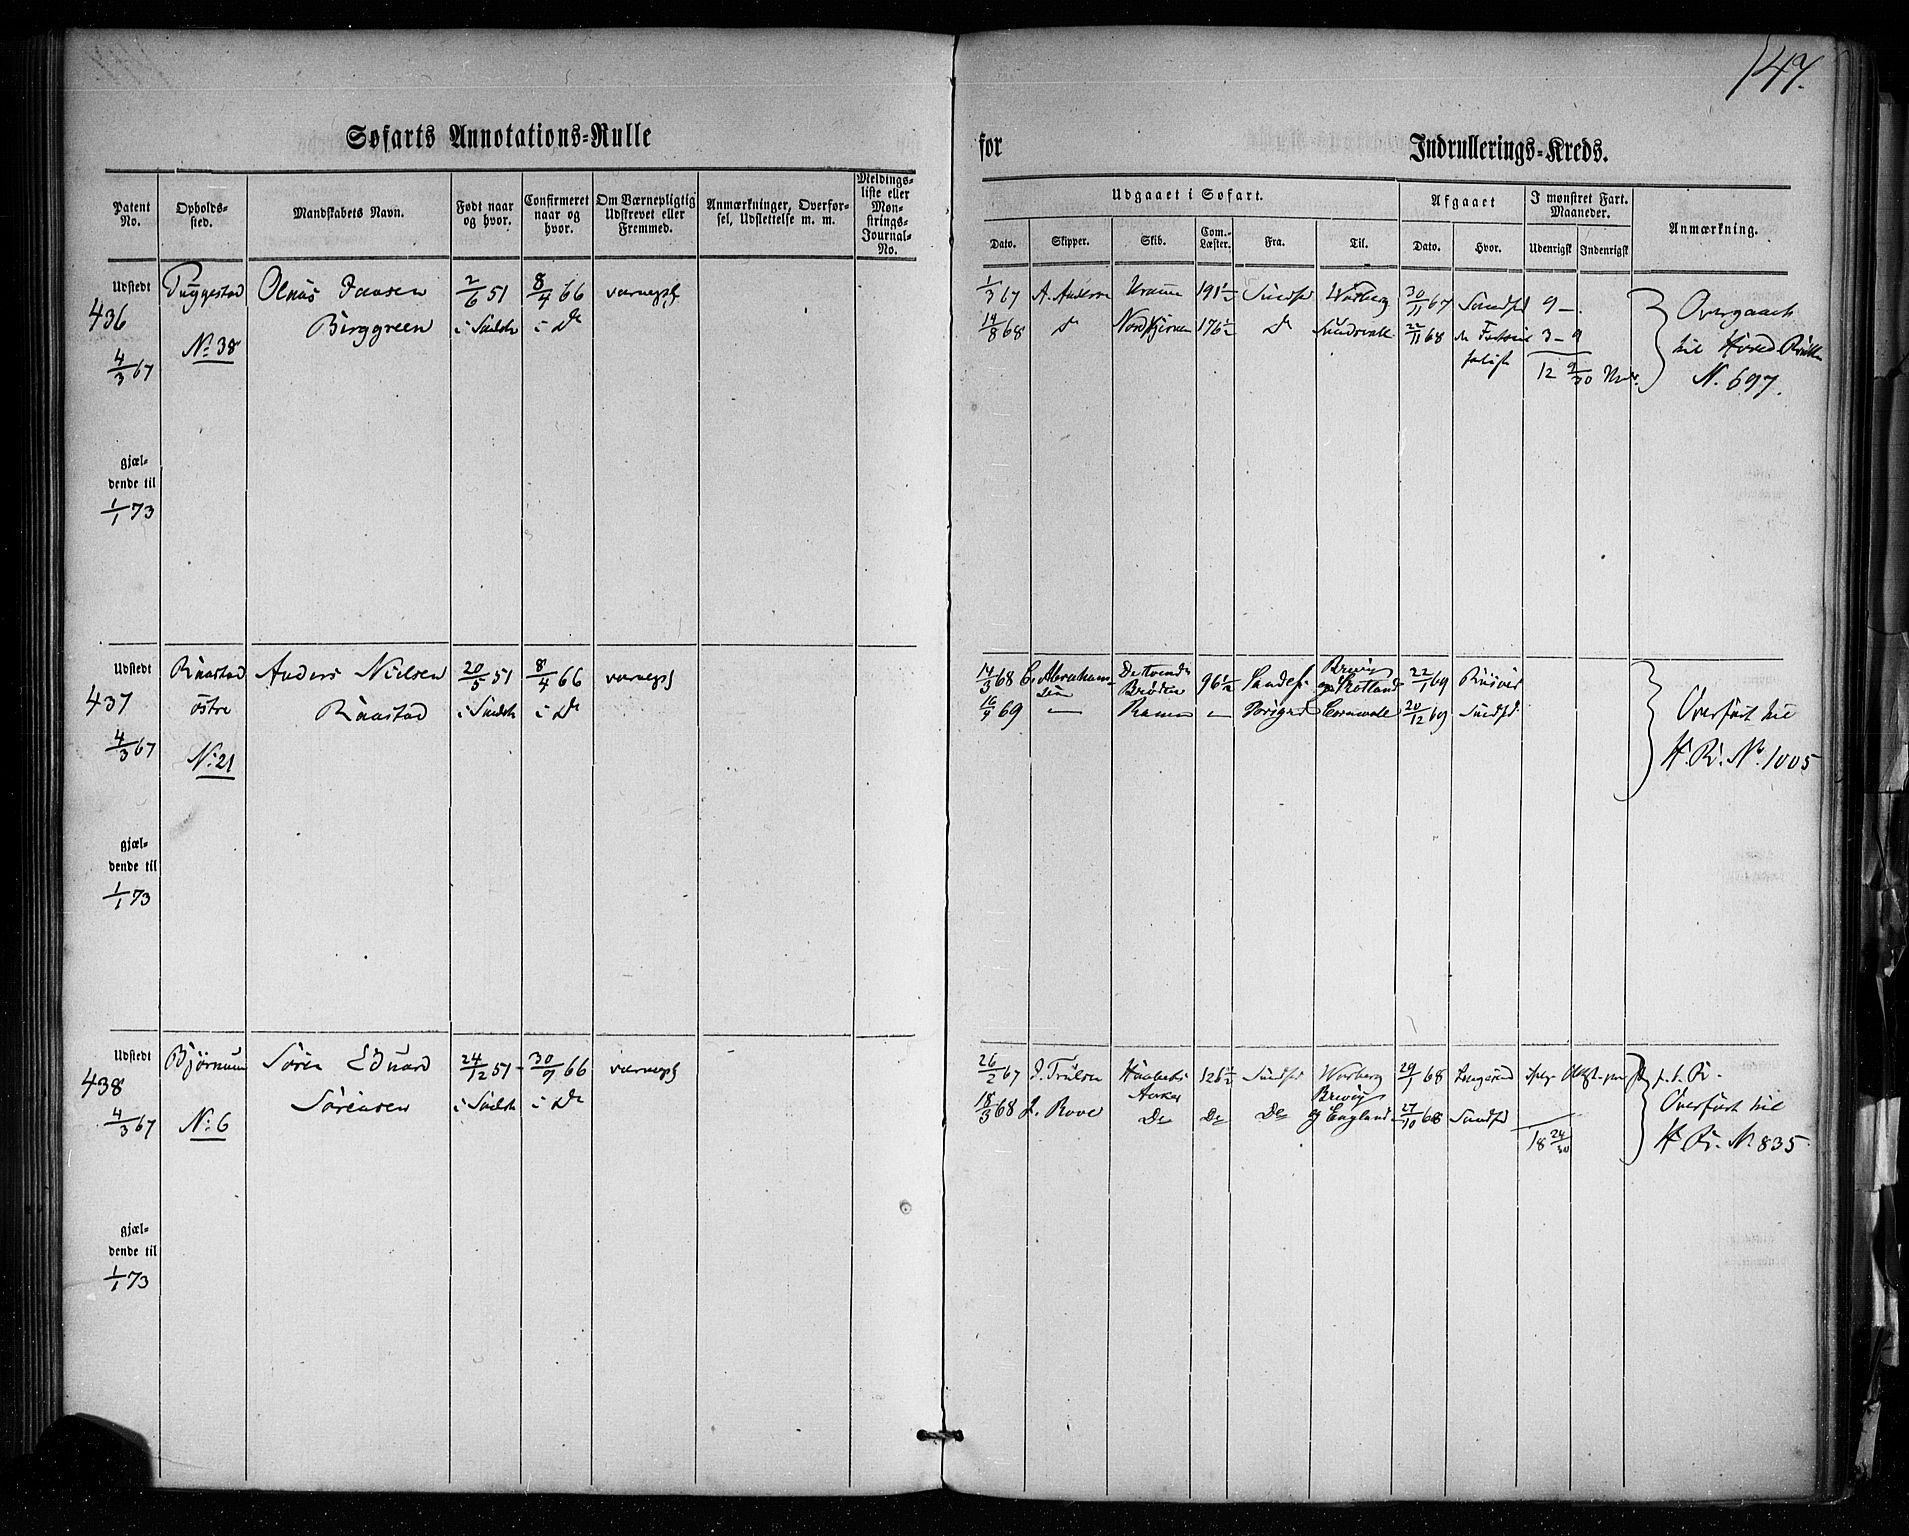 147.
Søfarts Annotations-Rulle for Indrullerings-Kreds.
Patent No.
Opholds-
sted.
Mandskabets Navn.
Født naar
og hvor.
Confirmeret
naar og
hvor.
Om Værnepligtig
Udskrevet eller
Fremmed.
Anmærkninger, Overfør-
sel, Udslettelse m. m.
Meldings-
liste eller
Møn-
strings-
Journal-
No.
Udgaaet i Søfart.
Dato.
Skipper.
Skib.
Com.-
Læster.
Fra.
Til.
Afgaaet
Dato.
Hvor.
I mønstret Fart.
Maaneder.
Udenrigsk
Indenrigsk
Anmærkning.
Udstedt
436
4/3 67
gjæl-
dende til
1/1 73
Puggestad
No 38
Olaus Jansen
Berggreen
2/6 51
8/4 66
i Do
værnepl
1/3 67 A. Anders 191 1/2 Sandefd Warberg 30/11 67 Sandefd 9 -
14/8 68 Do Nordstjernen 176 1/2 Do Sundsvall 22/11 68 3 - 9
12 9/30
Overgaaet
til Hoved Rullen
N. 697.
Udstedt
437
4/3 67
gjæl-
dende til
1/1 73
Raastad
østre
No 21
Anders Nielsen
Raastad
20/5 51
8/4 66
i Do
værnepl
14/3 68 C. Abraham-
sen De tvende
Brødre 96 1/2 Sandef Brevig
og Skotland 22/1 69 Risøer
16/9 69 - - Cornwall 20/12 69 Sandefd.
Overført til
H. R. No. 1005
Udstedt
438
4/3 67
gjæl-
dende til
1/1 73
Bjørnum
No 6
Søren Eduard
Sørensen
24/12 51
30/9 66
i Do
værnepl
26/2 67 J. Trulsen Haabets
Anker 126 1/2 Sandef Warberg 29/1 68 Langesund
18/3 68 J. Rove Do Do Do Brevig
og England 27/10 68 Sandefd
18 24/30
Overført til
H. R. No 835.